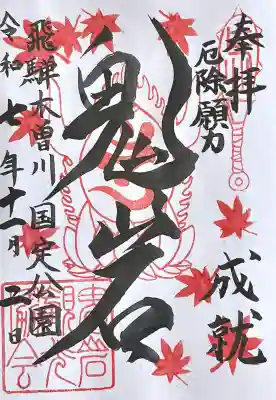 奉拝
厄除願力
成就
鬼岩
飛騨木曽川国定公園
令和七年十一月五日